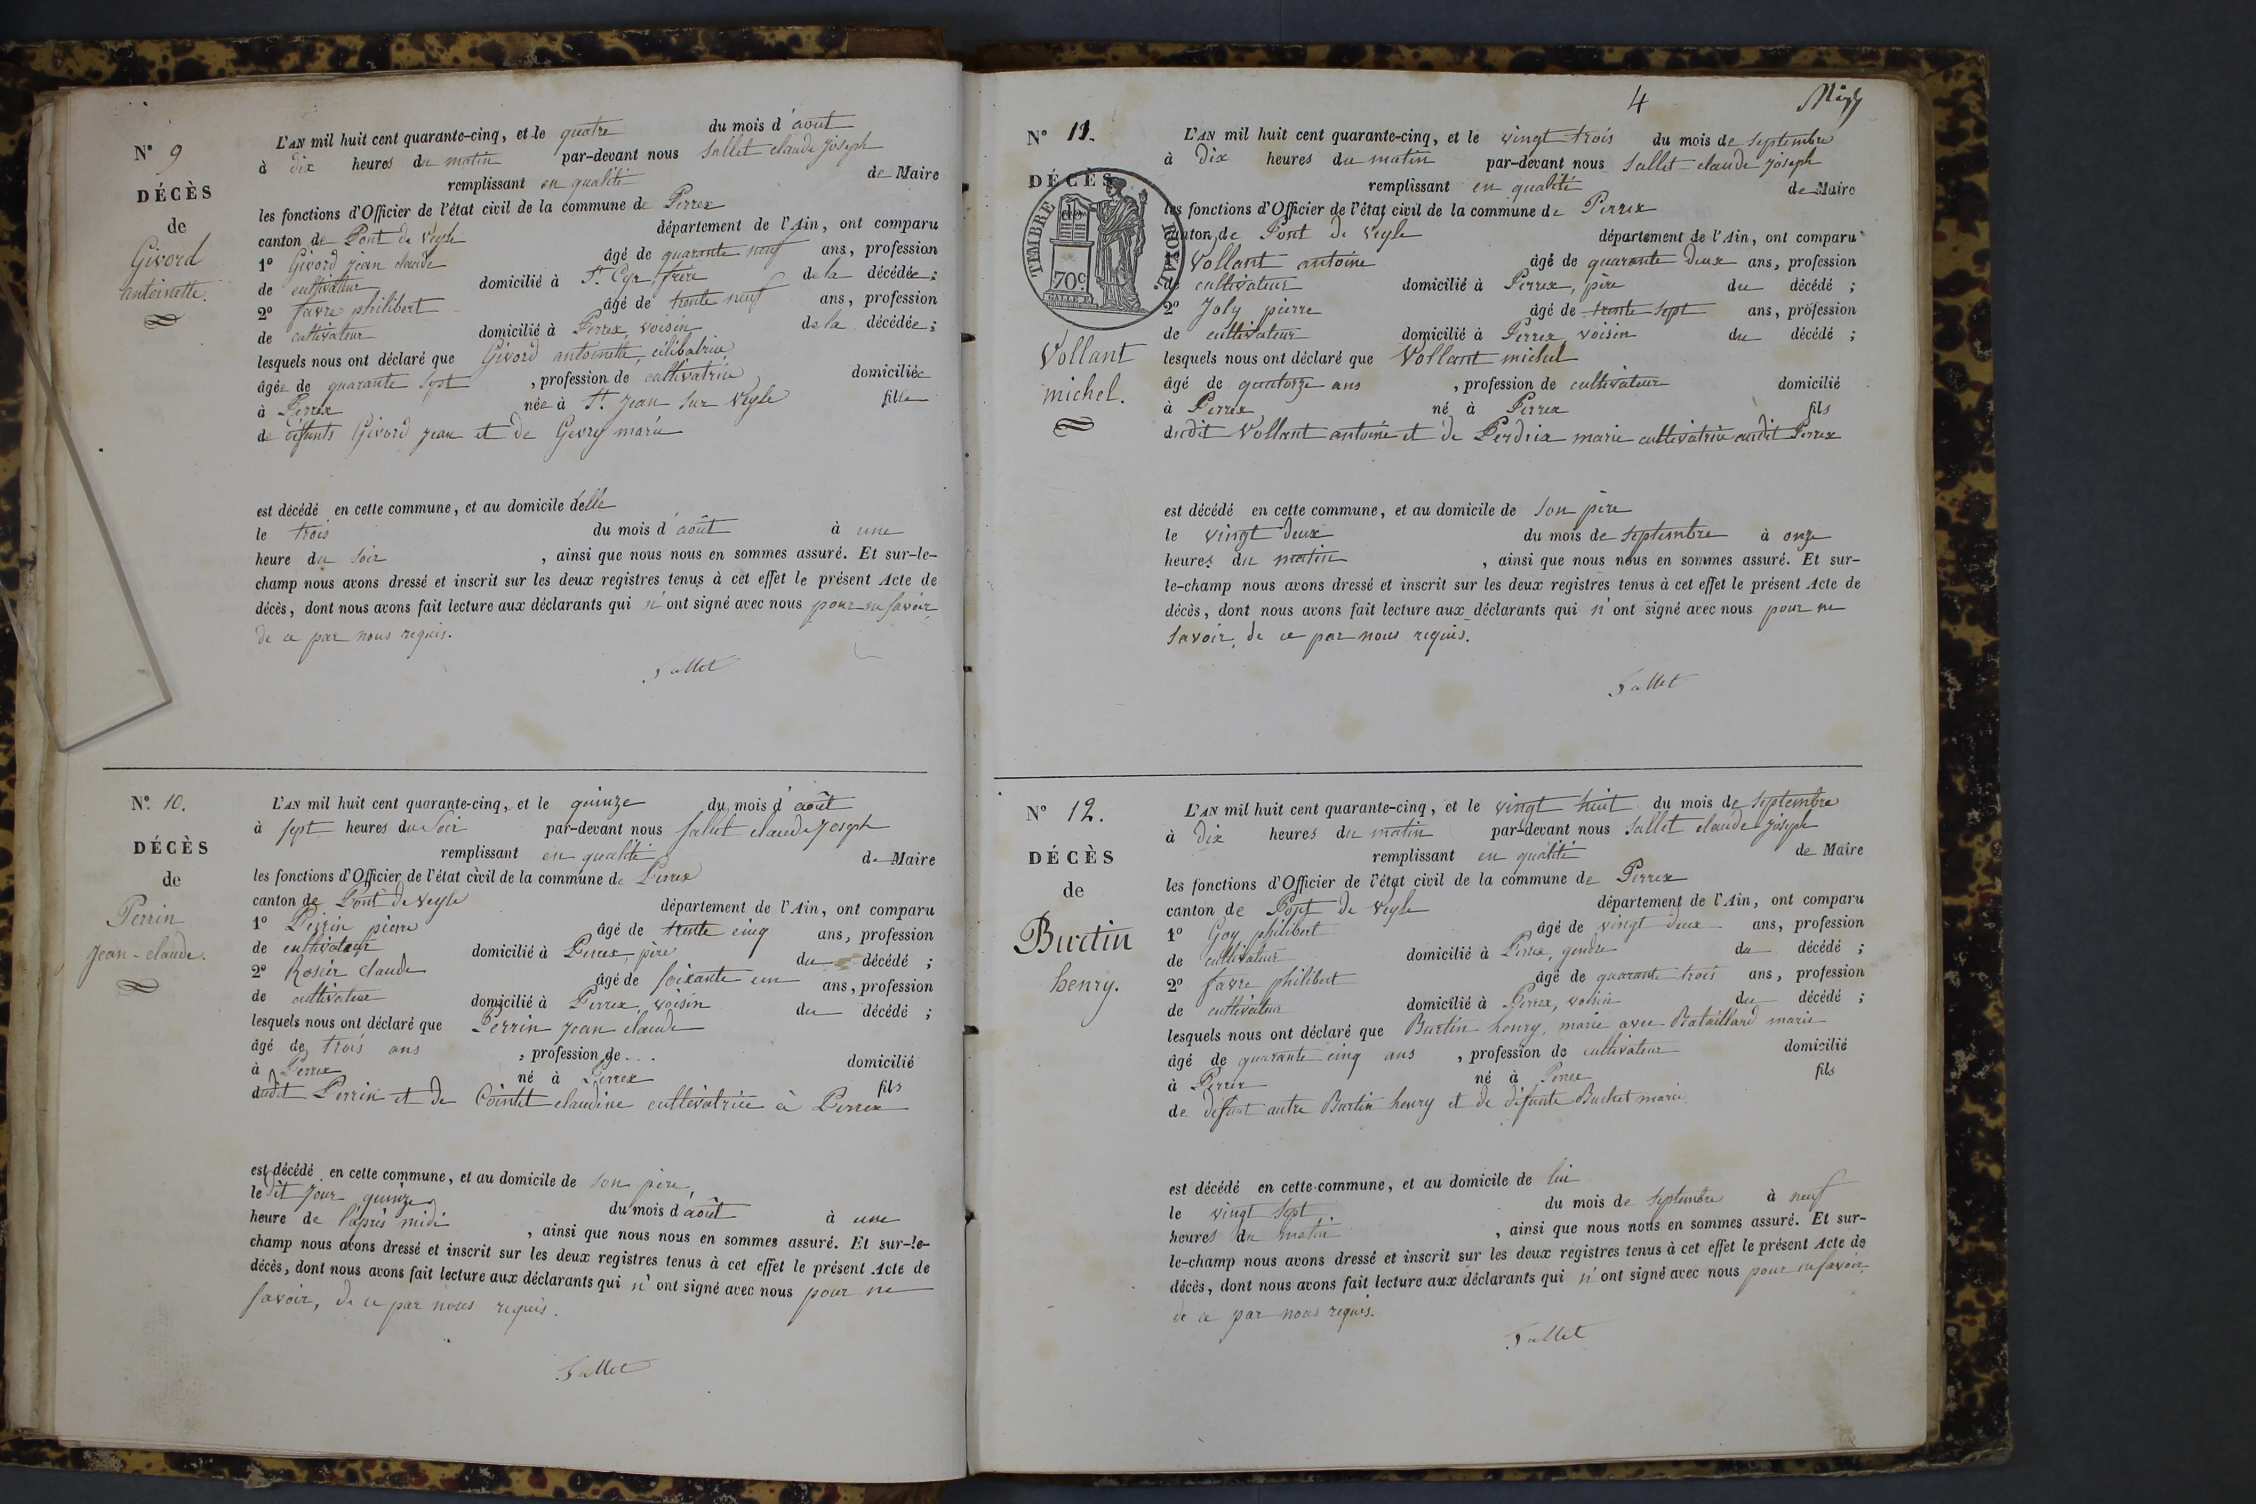 N° 9
DÉCÈS
de
Givord
antoinette.
L'AN mil huit cent quarante-cinq, et le quatre du mois d'août
à dix heures du matin par-devant nous Sallet claude joseph
remplissant en qualité de Maire
les fonctions d'Officier de l'état civil de la commune de Perrex
canton de Pont de Veyle département de l'Ain, ont comparu
1° Givord jean claude âgé de quarante neuf ans, profession
de cultivateur domicilié à St. Cyr, frère de la décédée;
2° favre philibert âgé de trente neuf ans, profession
de cultivateur domicilié à Perrex, voisin de la décédée;
lesquels nous ont déclaré que Givord antoinette, célibatrice
âgée de quarante sept, profession de cultivatrice domiciliée
à Perrex née à St. jean sur Veyle fille
de défunts Givord jean et de Gevrey marie
est décédé en cette commune, et au domicile d'elle
le trois du mois d'août à une
heure du soir, ainsi que nous nous en sommes assuré. Et sur-le-
champ nous avons dressé et inscrit sur les deux registres tenus à cet effet le présent Acte de
décès, dont nous avons fait lecture aux déclarants qui n'ont signé avec nous pour ne savoir,
de ce par nous requis.
Sallet
N°. 10.
DÉCÈS
de
Perrin
jean-claude.
L'AN mil huit cent quarante-cinq, et le quinze du mois d'août
à sept heures du soir par-devant nous Sallet claude joseph
remplissant en qualité de Maire
les fonctions d'Officier de l'état civil de la commune de Perrex
canton de Pont de Veyle département de l'Ain, ont comparu
1° Perrin pierre âgé de trente cinq ans, profession
de cultivateur domicilié à Perrex, père du décédé;
2° Rosier claude âgé de soixante un ans, profession
de cultivateur domicilié à Perrex, voisin du décédé;
lesquels nous ont déclaré que Perrin jean claude
âgé de trois ans, profession de... domicilié
à Perrex né à Perrex fils
dudit Perrin et de Cointet claudine cultivatrice à Perrex
est décédé en cette commune, et au domicile de son père,
le dit jour quinze du mois d'août à une
heure de l'après midi, ainsi que nous nous en sommes assuré. Et sur-le-
champ nous avons dressé et inscrit sur les deux registres tenus à cet effet le présent Acte de
décès, dont nous avons fait lecture aux déclarants qui n'ont signé avec nous pour ne
savoir, de ce par nous requis.
Sallet
4
N° 11.
DÉCÈS
de
TIMBRE ROYAL
70c
Vollant
michel.
L'AN mil huit cent quarante-cinq, et le vingt trois du mois de septembre
à dix heures du matin par-devant nous Sallet claude joseph
remplissant en qualité de Maire
les fonctions d'Officier de l'état civil de la commune de Perrex
canton de Pont de Veyle département de l'Ain, ont comparu
Vollant antoine âgé de quarante deux ans, profession
de cultivateur domicilié à Perrex, père du décédé;
2° Joly pierre âgé de trente sept ans, profession
de cultivateur domicilié à Perrex, voisin du décédé;
lesquels nous ont déclaré que Vollant michel
âgé de quatorze ans, profession de cultivateur domicilié
à Perrex né à Perrex fils
dudit Vollant antoine et de Perdrix marie cultivatrice audit Perrex
est décédé en cette commune, et au domicile de son père
le vingt deux du mois de septembre à onze
heures du matin, ainsi que nous nous en sommes assuré. Et sur-
le-champ nous avons dressé et inscrit sur les deux registres tenus à cet effet le présent Acte de
décès, dont nous avons fait lecture aux déclarants qui n'ont signé avec nous pour ne
savoir, de ce par nous requis.
Sallet
N° 12.
DÉCÈS
de
Burtin
henry.
L'AN mil huit cent quarante-cinq, et le vingt huit du mois de septembre
à dix heures du matin par-devant nous Sallet claude joseph
remplissant en qualité de Maire
les fonctions d'Officier de l'état civil de la commune de Perrex
canton de Pont de Veyle département de l'Ain, ont comparu
1° Goy philibert âgé de vingt deux ans, profession
de cultivateur domicilié à Perrex, gendre du décédé;
2° favre philibert âgé de quarante trois ans, profession
de cultivateur domicilié à Perrex, voisin du décédé;
lesquels nous ont déclaré que Burtin henry, marié avec Bataillard marie
âgé de quarante cinq ans, profession de cultivateur domicilié
à Perrex né à Perrex fils
de défunt autre Burtin henry et de défunte Buchet marie
est décédé en cette commune, et au domicile de lui
le vingt sept du mois de septembre à neuf
heures du matin, ainsi que nous nous en sommes assuré. Et sur-
le-champ nous avons dressé et inscrit sur les deux registres tenus à cet effet le présent Acte de
décès, dont nous avons fait lecture aux déclarants qui n'ont signé avec nous pour ne savoir,
de ce par nous requis.
Sallet